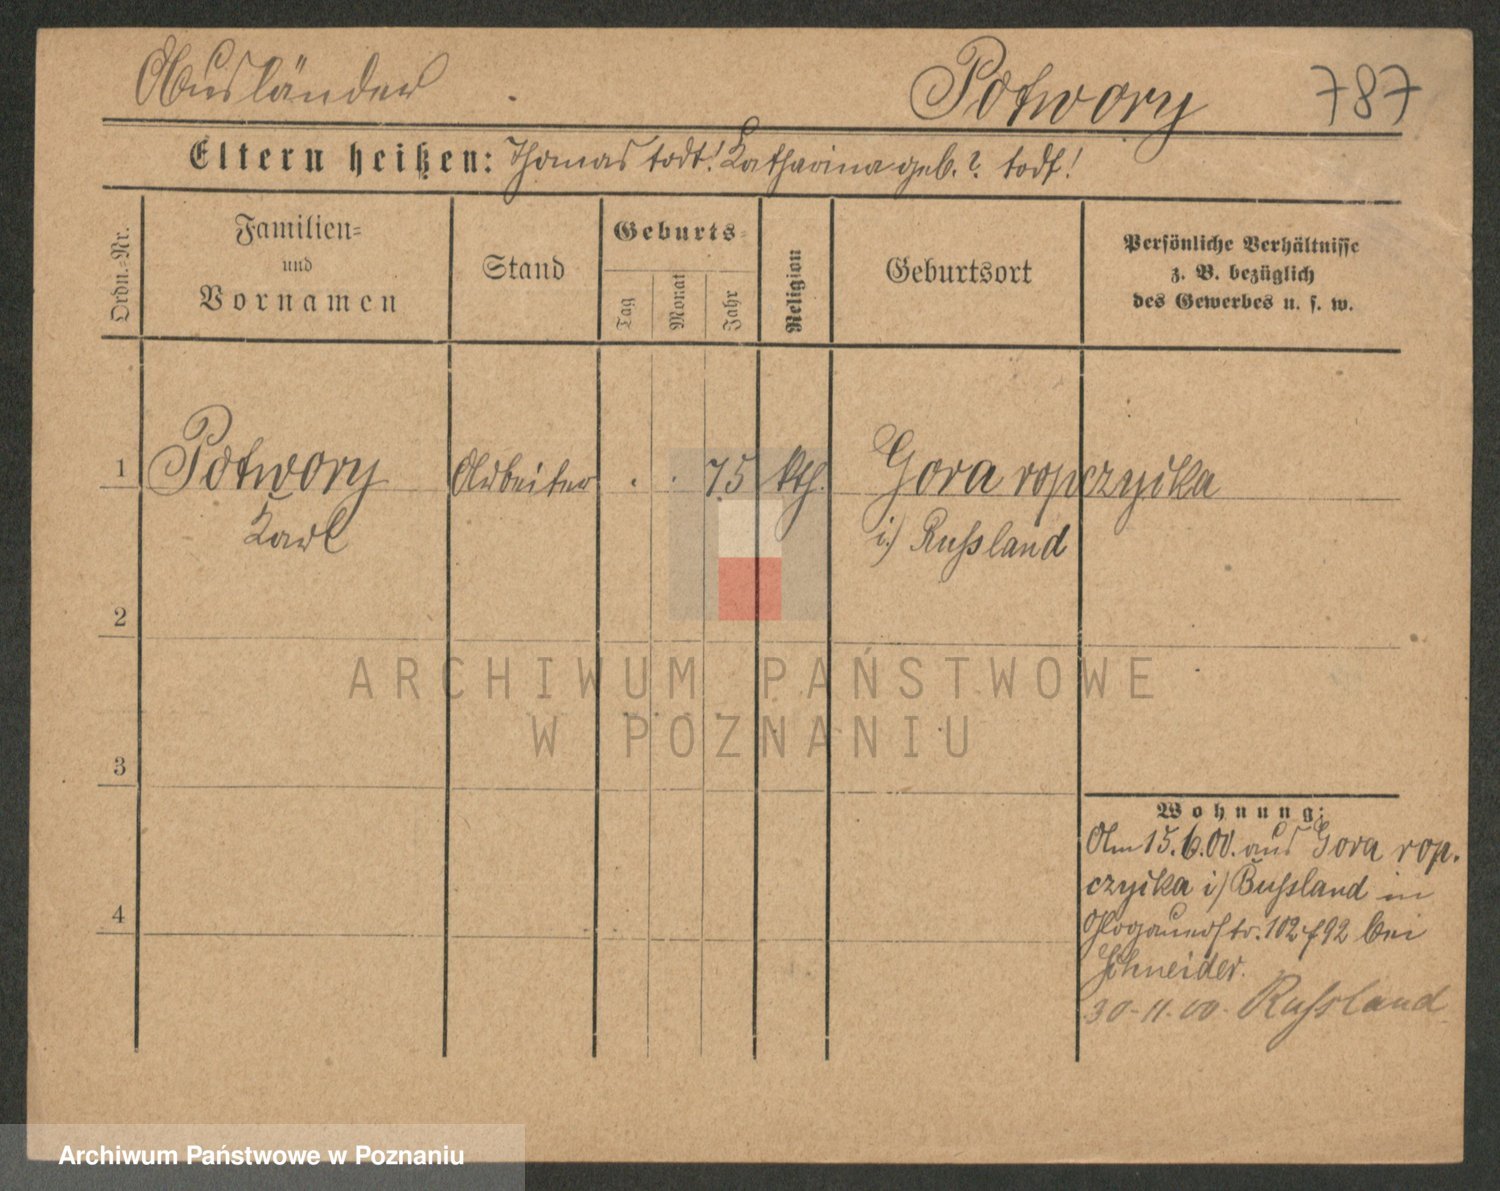 Ausländer . Potwory 787
Eltern heißen: Thomas todt! Katharina geb. ? todt!
Ordn.=Nr.
Familien=
und
Vornamen
Stand
Geburts=
Tag
Monat
Jahr
Religion
Geburtsort
Persönliche Verhältnisse
z. B. bezüglich
des Gewerbes u. s. w.
1 Potwory Arbeiter . . 75 kth. Gora ropczyika
Karl i/ Russland
2
3
4
Wohnung:
Am 15.6.00. aus Gora rop.
czyika i/ Russland in
Glogauerstr. 102/92 bei
Schneider.
30-11-00. Russland
ARCHIWUM PAŃSTWOWE
W POZNANIU
Archiwum Państwowe w Poznaniu